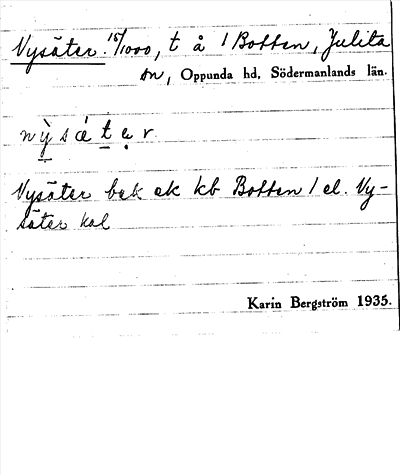 Nysäter. 15/1000, t å 1 Botten, Julita
sn, Oppunda hd, Södermanlands län.
nỳsǽtẹr
Nysäter bek ek kb Botten 1 el. Ny-
säter kal
Karin Bergström 1935.